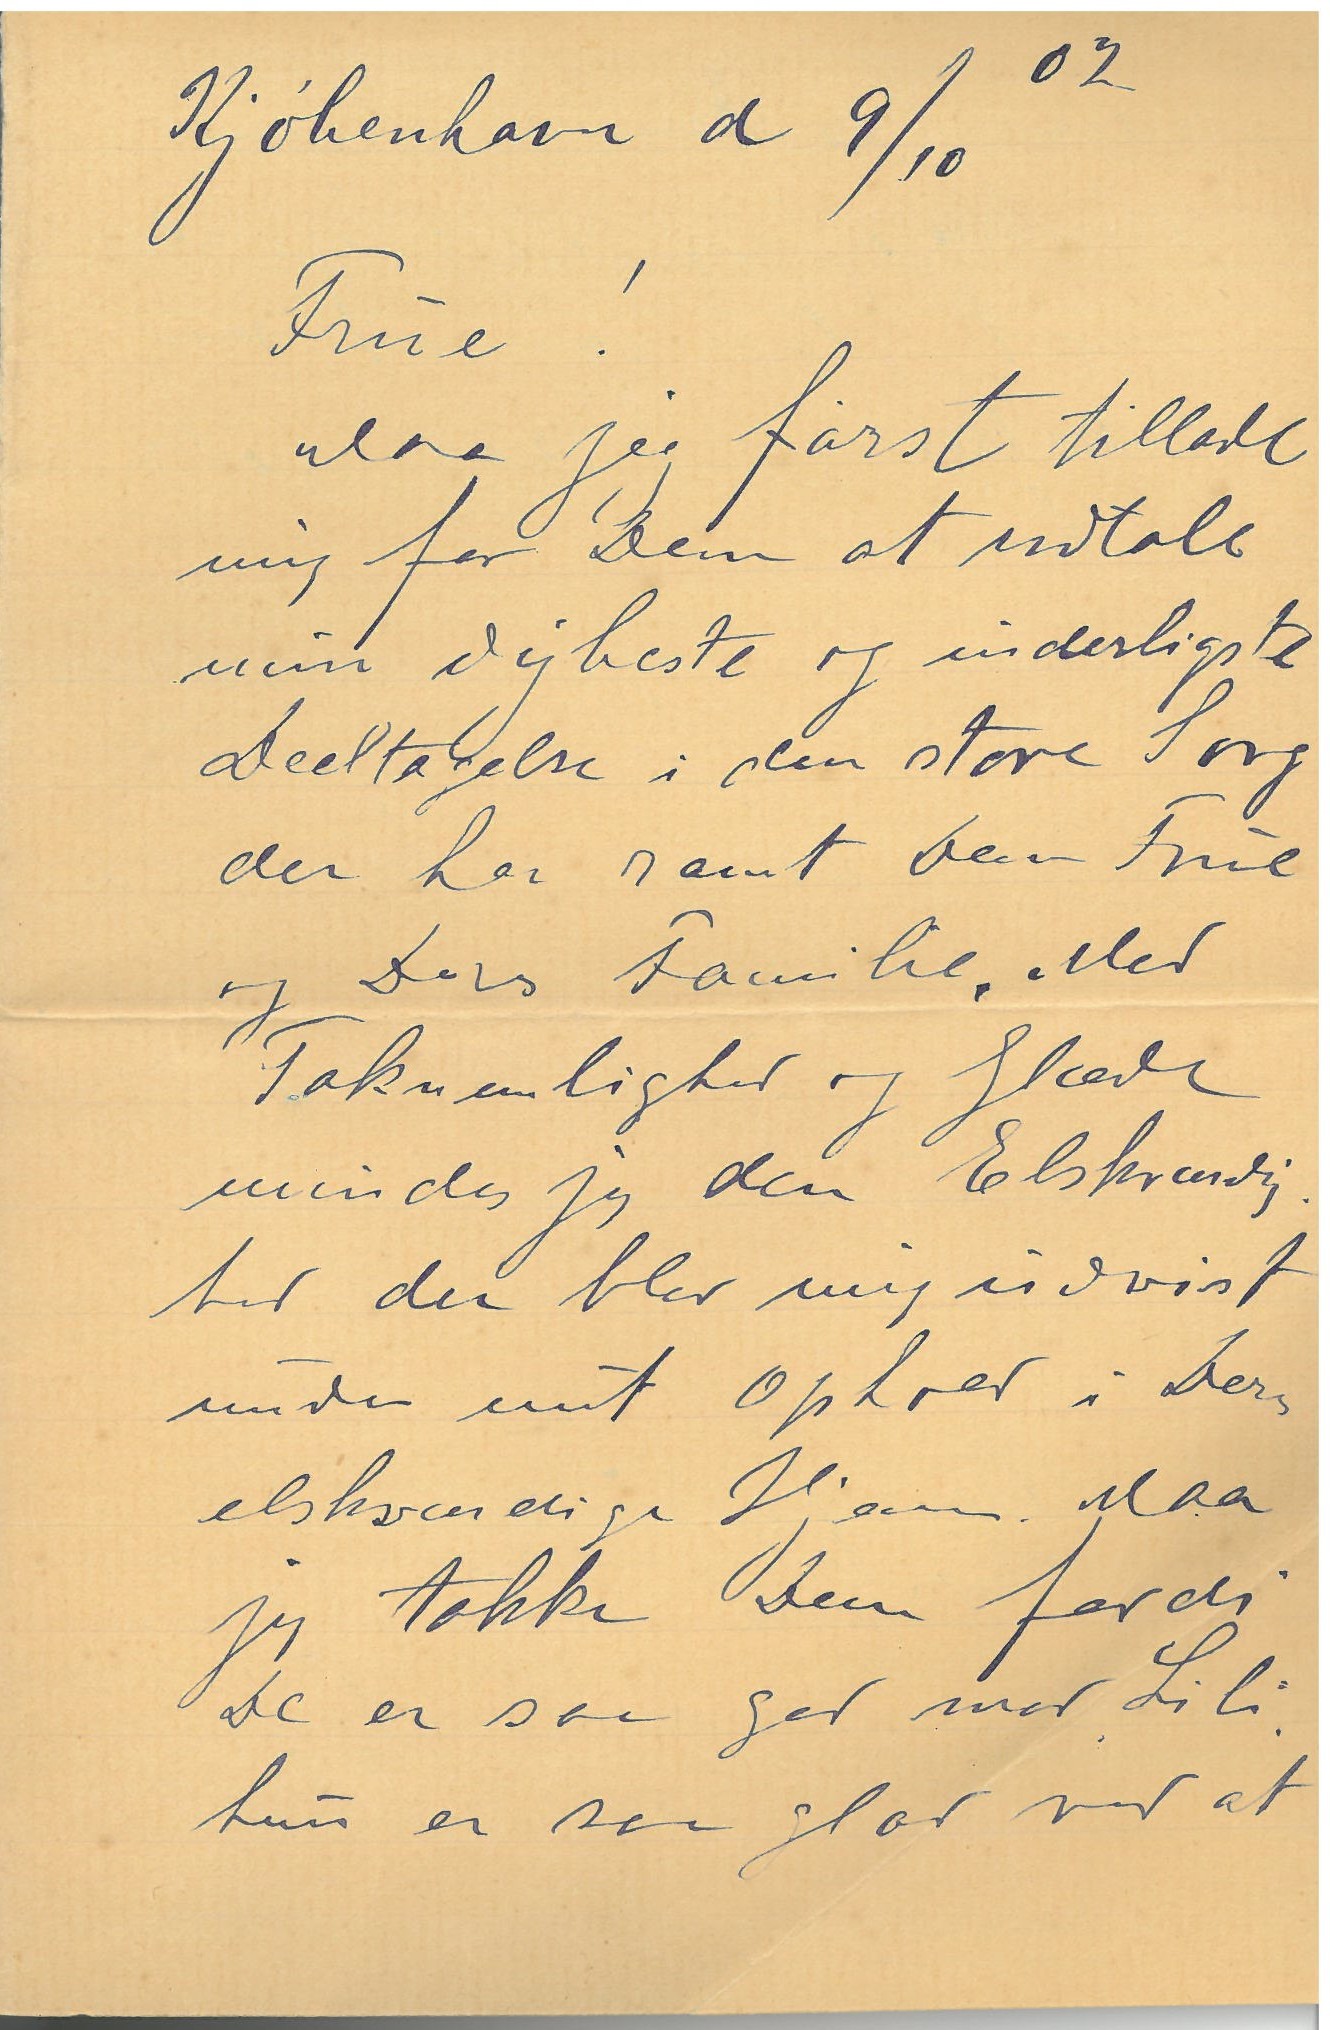 Kjóbenhavn d 9/10 02
Frue!
Maa jeg først tillade
mig for Dem at udtale
min dybeste og inderligste
Deeltagelse i den store Sorg
der har ramt Dem Frue
og Deres Familie. Med
Taknemlighed og Glæde
mindes jeg den Elskværdig-
hed der blev mig udvist
under mit Ophold i Deres
elskværdige Hjem. Maa
jeg takke Dem fordi
De er saa god mod Lili.
hun er saa glad ved at